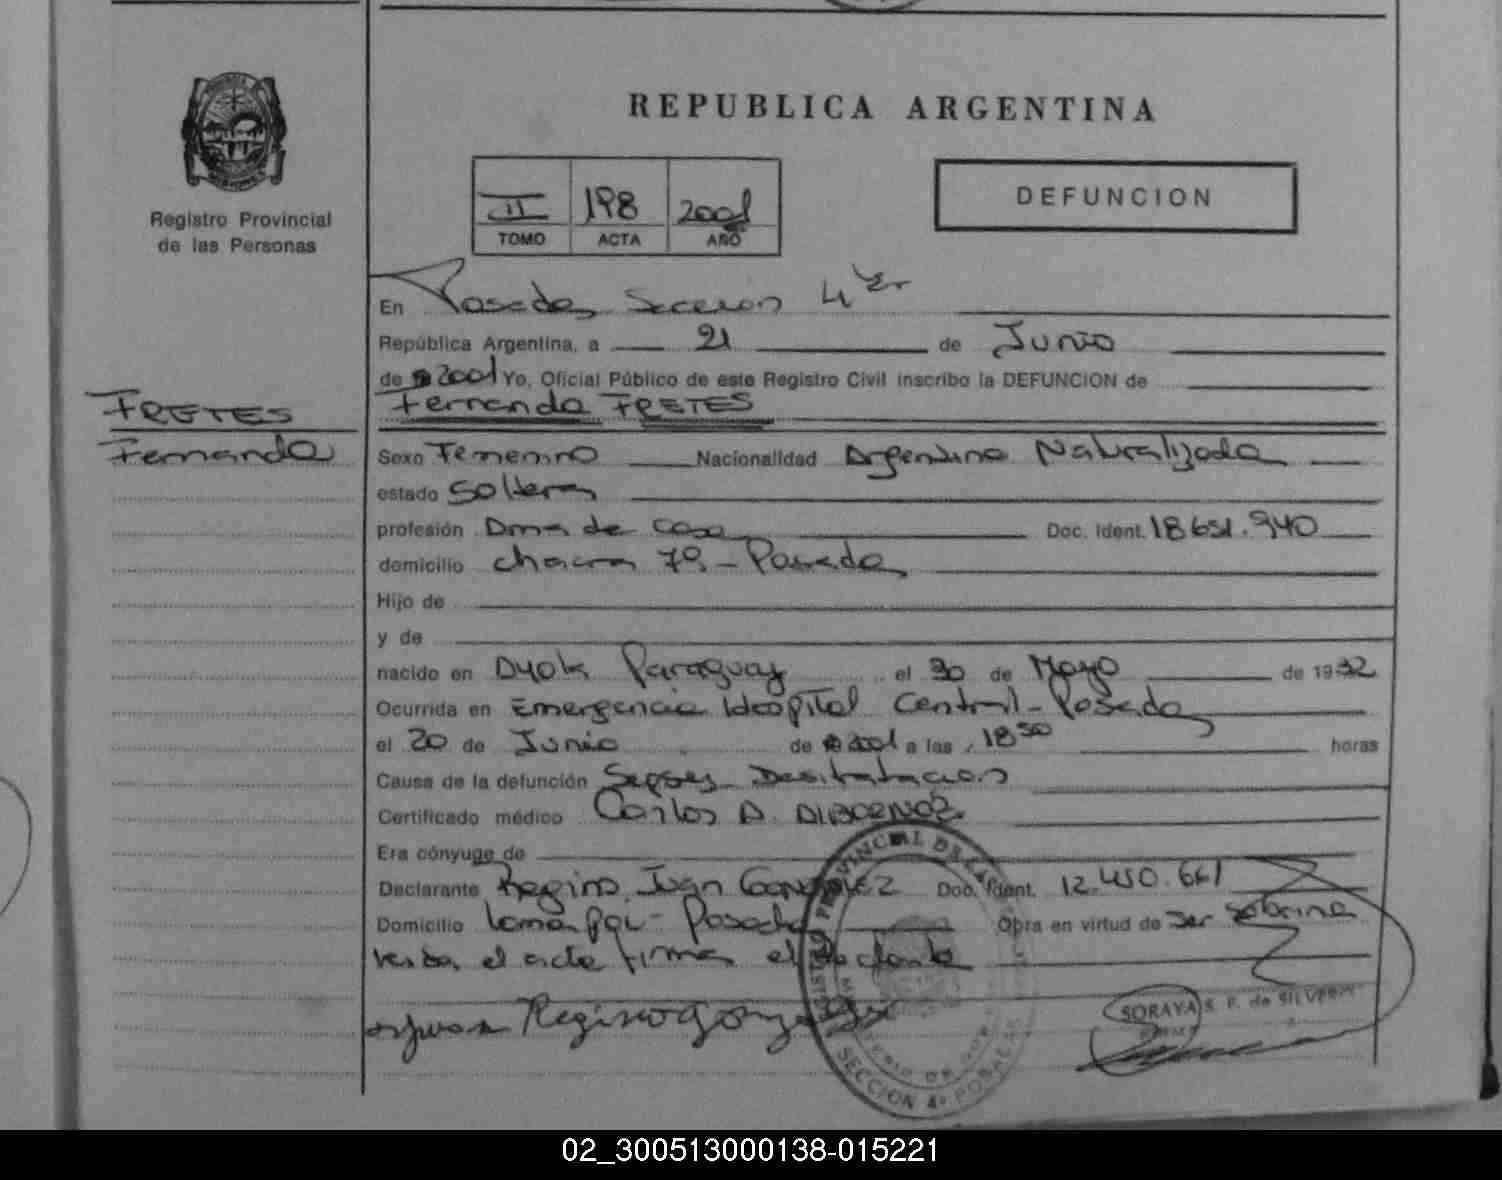 REPUBLICA ARGENTINA
PROVINCIA DE
MISIONES
Registro Provincial
de las Personas
II 198 2001
TOMO ACTA AÑO
DEFUNCION
En Posadas Sección 4
República Argentina, a 21 de Junio
de 2001 Yo, Oficial Público de este Registro Civil inscribo la DEFUNCION de
Fernanda FRETES
FRETES
Fernanda
Sexo Femenino Nacionalidad Argentina Naturalizada
estado Soltera
profesión Ama de Casa Doc. Ident. 18651.940
domicilio chacra Posadas
Hijo de
y de
nacido en Paraguay el 30 de Mayo de 1932
Ocurrida en Emergencia Hospital Central - Posadas
el 20 de Junio de 2001 a las 18 horas
Causa de la defunción Desitratacion
Certificado médico Carlos A.
Era cónyuge de
Declarante Regino Juan GONZALEZ Doc. Ident. 12.450.661
Domicilio Posadas Obra en virtud de ser Sobrino
el acta firma el
Regino Gonzalez
PROVINCIAL DE LAS
SECCION 4ª POSADAS
SORAYA S. F. de SILVERA
02_300513000138-015221